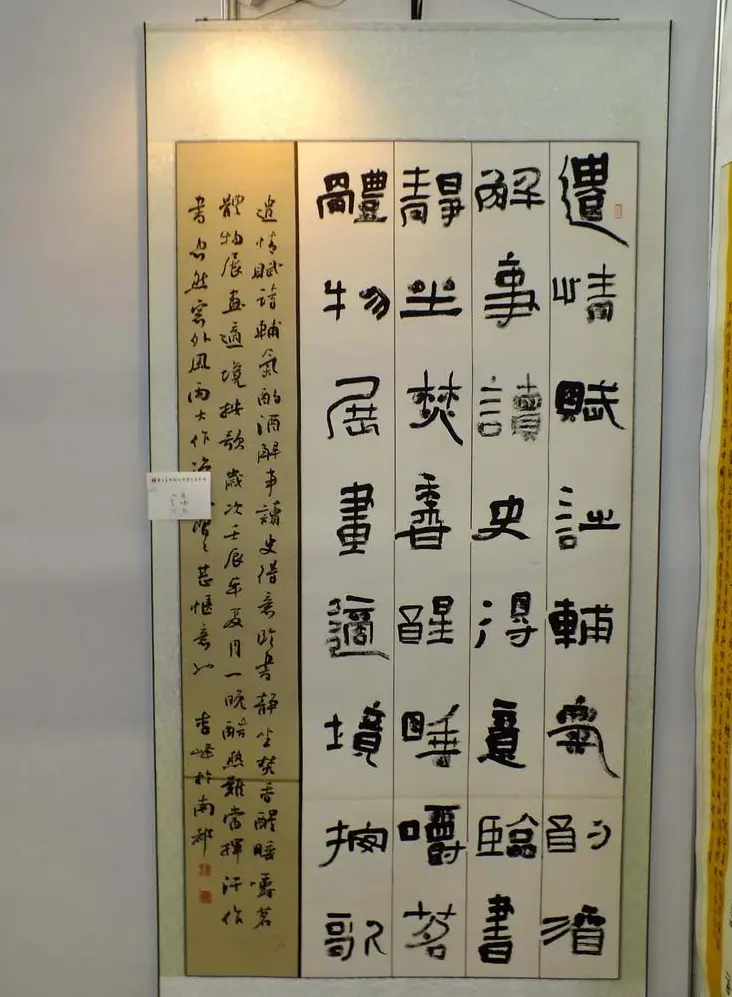 遣情賦詩輔氣酌酒
解事讀史得意臨書
靜坐焚香醒睡嚼茗
體物展畫適境按歌
遣情賦詩輔氣酌酒解事讀史得意臨書靜坐焚香醒睡嚼茗
體物展畫適境按歌歲次壬辰年夏月一晚酷熱難當揮汗作
書忽然窗外風雨大作甚愜意也峰於南都